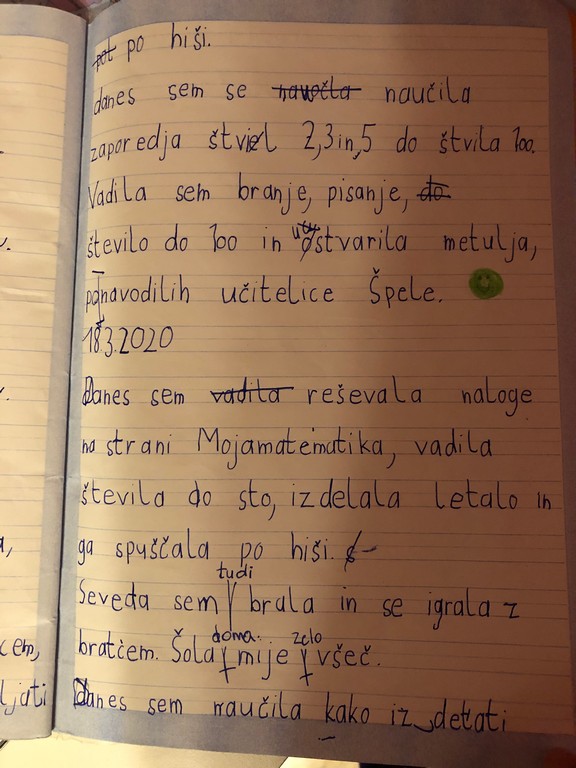 po hiši.
danes sem se naučila
zaporedja štvil 2,3in,5 do štvila 100.
Vadila sem branje, pisanje, do
število do 100 in ustvarila metulja,
po navodilih učitelice Špele.
18.3.2020
Danes sem vadila reševala naloge
na strani Mojamatematika, vadila
števila do sto, izdelala letalo in
ga spuščala po hiši.
tudi
Seveda sem brala in se igrala z
doma. zelo
bratcem. Šola mi je všeč.
Danes sem naučila kako iz detati
cem,
ljati